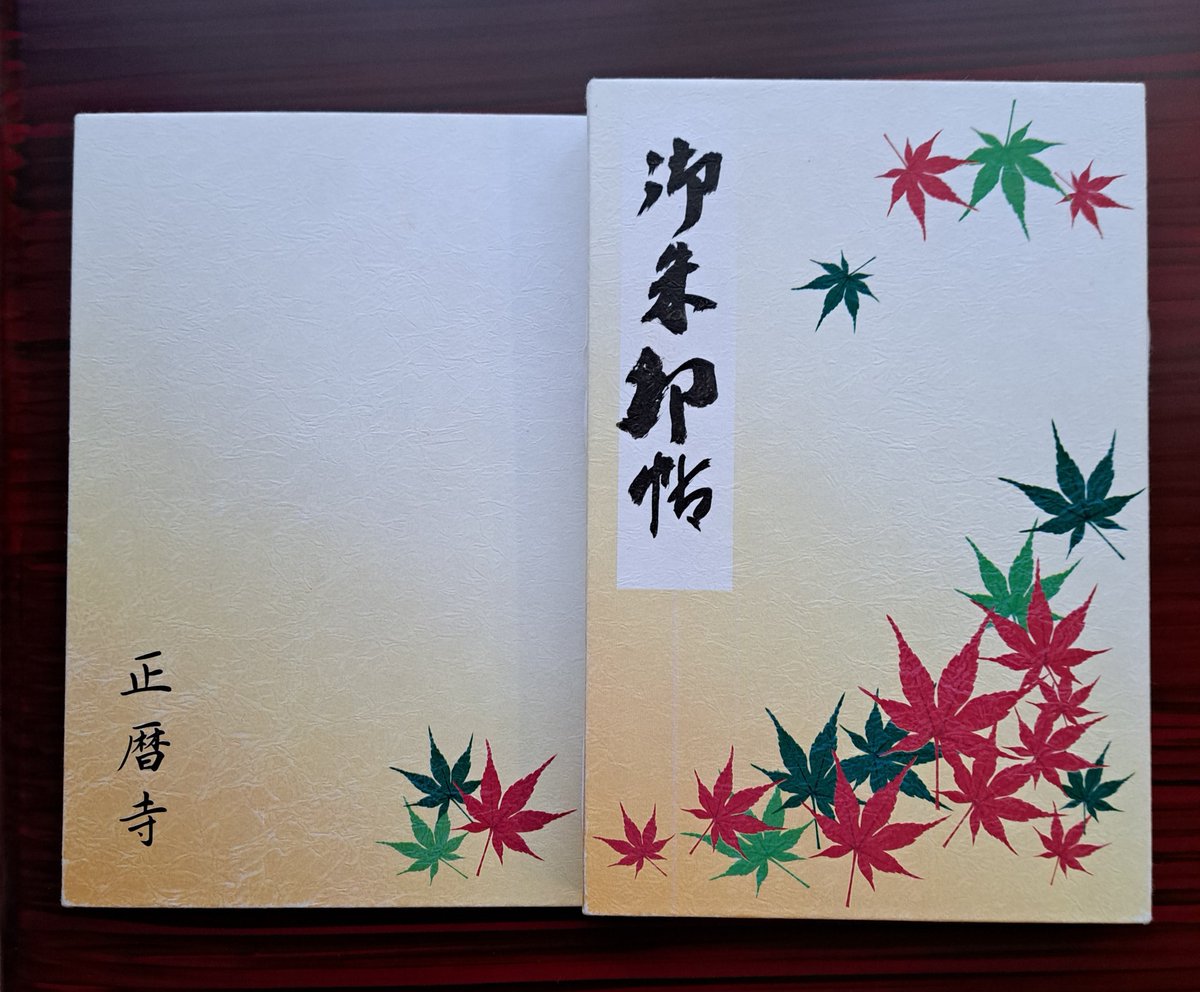 御朱印帖
正暦寺